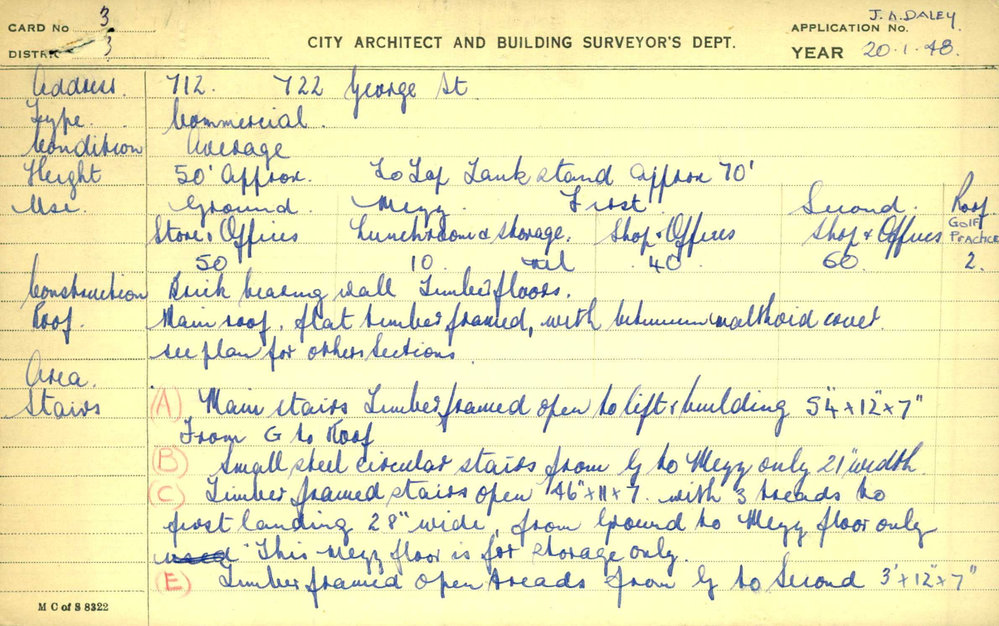 CARD No 3
DISTRICT 3
CITY ARCHITECT AND BUILDING SURVEYOR'S DEPT.
J. A. DALEY
APPLICATION No.
YEAR 20.1.48.
Address. 712. 722 George St
Type. Commercial.
Condition Average
Height 50' Approx. To Top Tank stand approx 70'
Use. Ground. Mezz. First. Second. Roof.
Store & Offices Lunchroom & storage. Shop & Offices Shop & Offices GOLF PRACTICE
50 10 nil 40 60 2.
Construction Brick bearing wall Timber floors.
Roof. Main roof, flat timber framed, with bitumen malthoid cover
see plan for others Sections.
Area.
Stairs (A) Main stairs Timber framed open to lift & building 54"x12"x7"
From G to Roof
(B) Small steel circular stairs from G to Mezz only 21" width
(C) Timber framed stairs open 46"x11x7. with 3 treads to
first landing 28" wide, from Ground to Mezz floor only
This mezz floor is for storage only.
(E) Timber framed open treads from G to Second 3'x12"x7"
M C of S 8322